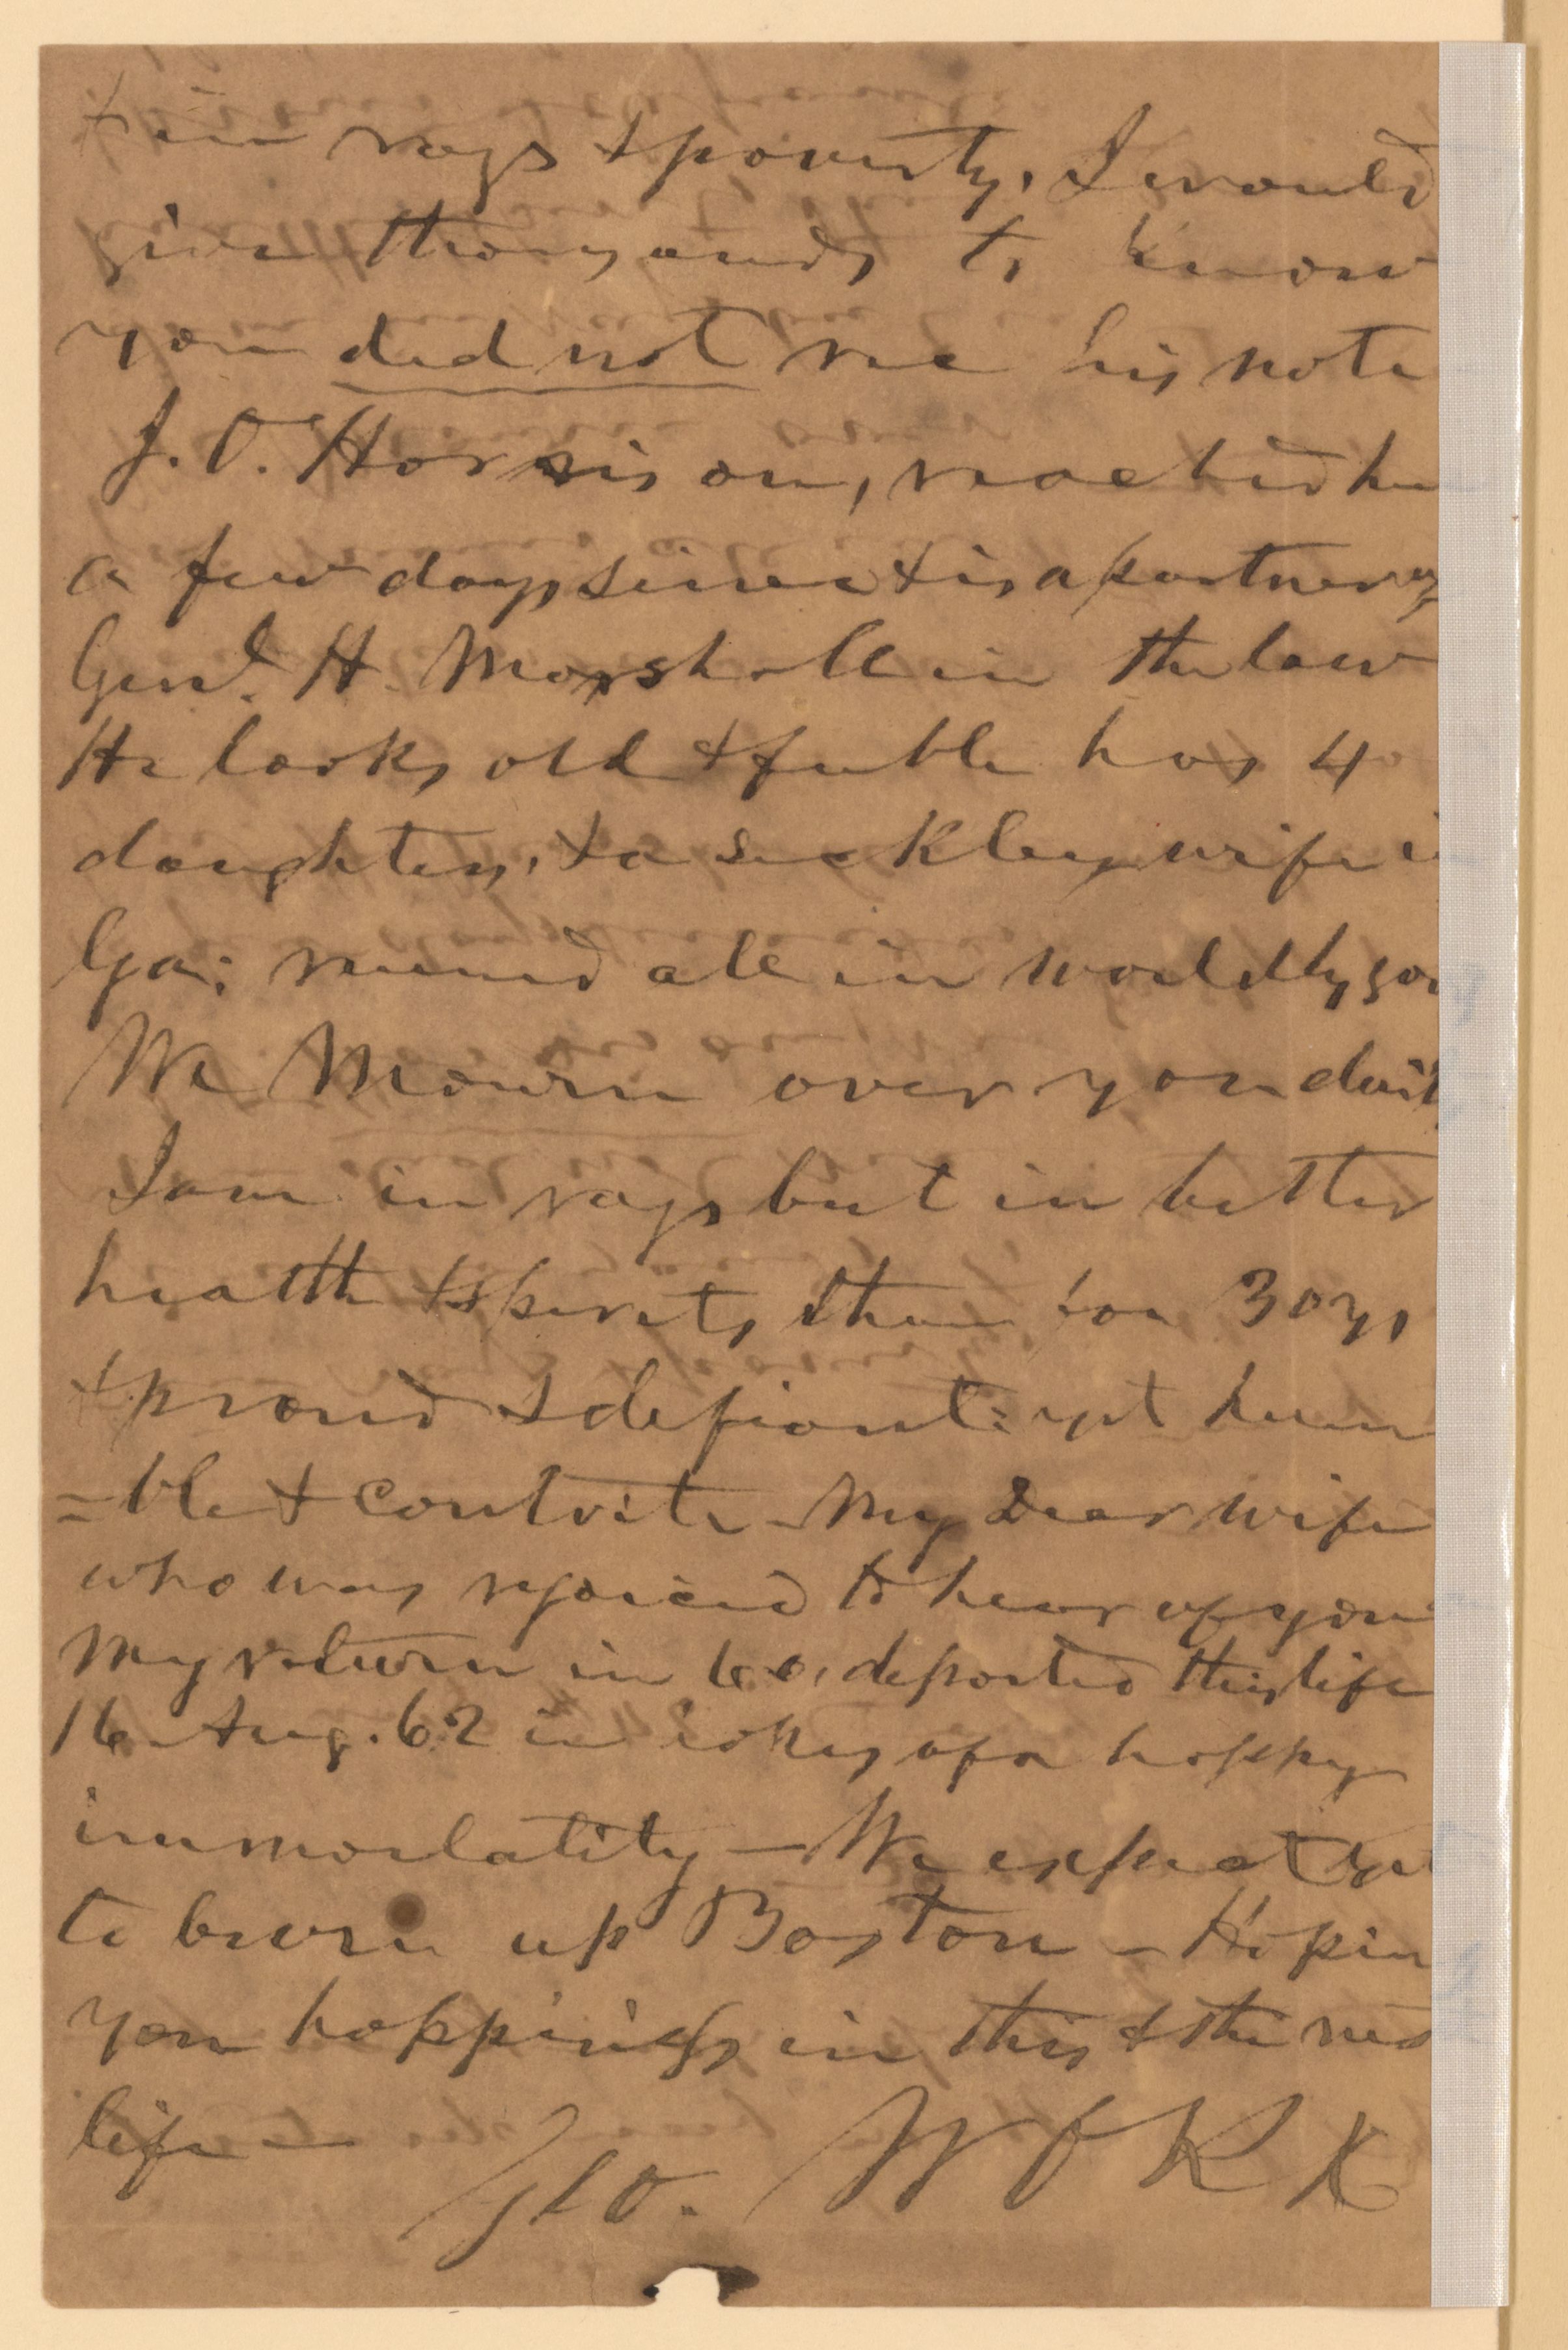 & in rags & poverty. I would
give thousands to know
you did not rec his note
J. O. Harrison, reached he
a few days since & is a partner of
Genl. H. Marshall in the law
He looks old & feeble has 4
daughters, & a sickley wife i
Ga; ruined all in worldly goo
We Mourn over you daily
I am in rags but in better
health & spirits than for 30 ys
& proud & defiant: yet hum
=ble & contrite - My Dear wife
who was rejoiced to hear of you
My return in 60, departed this life
16 Aug. 62 in of a happy
immortality — We expect yet
to burn up Boston - Hopin
you happiness in this & the nex
life —
Geo.